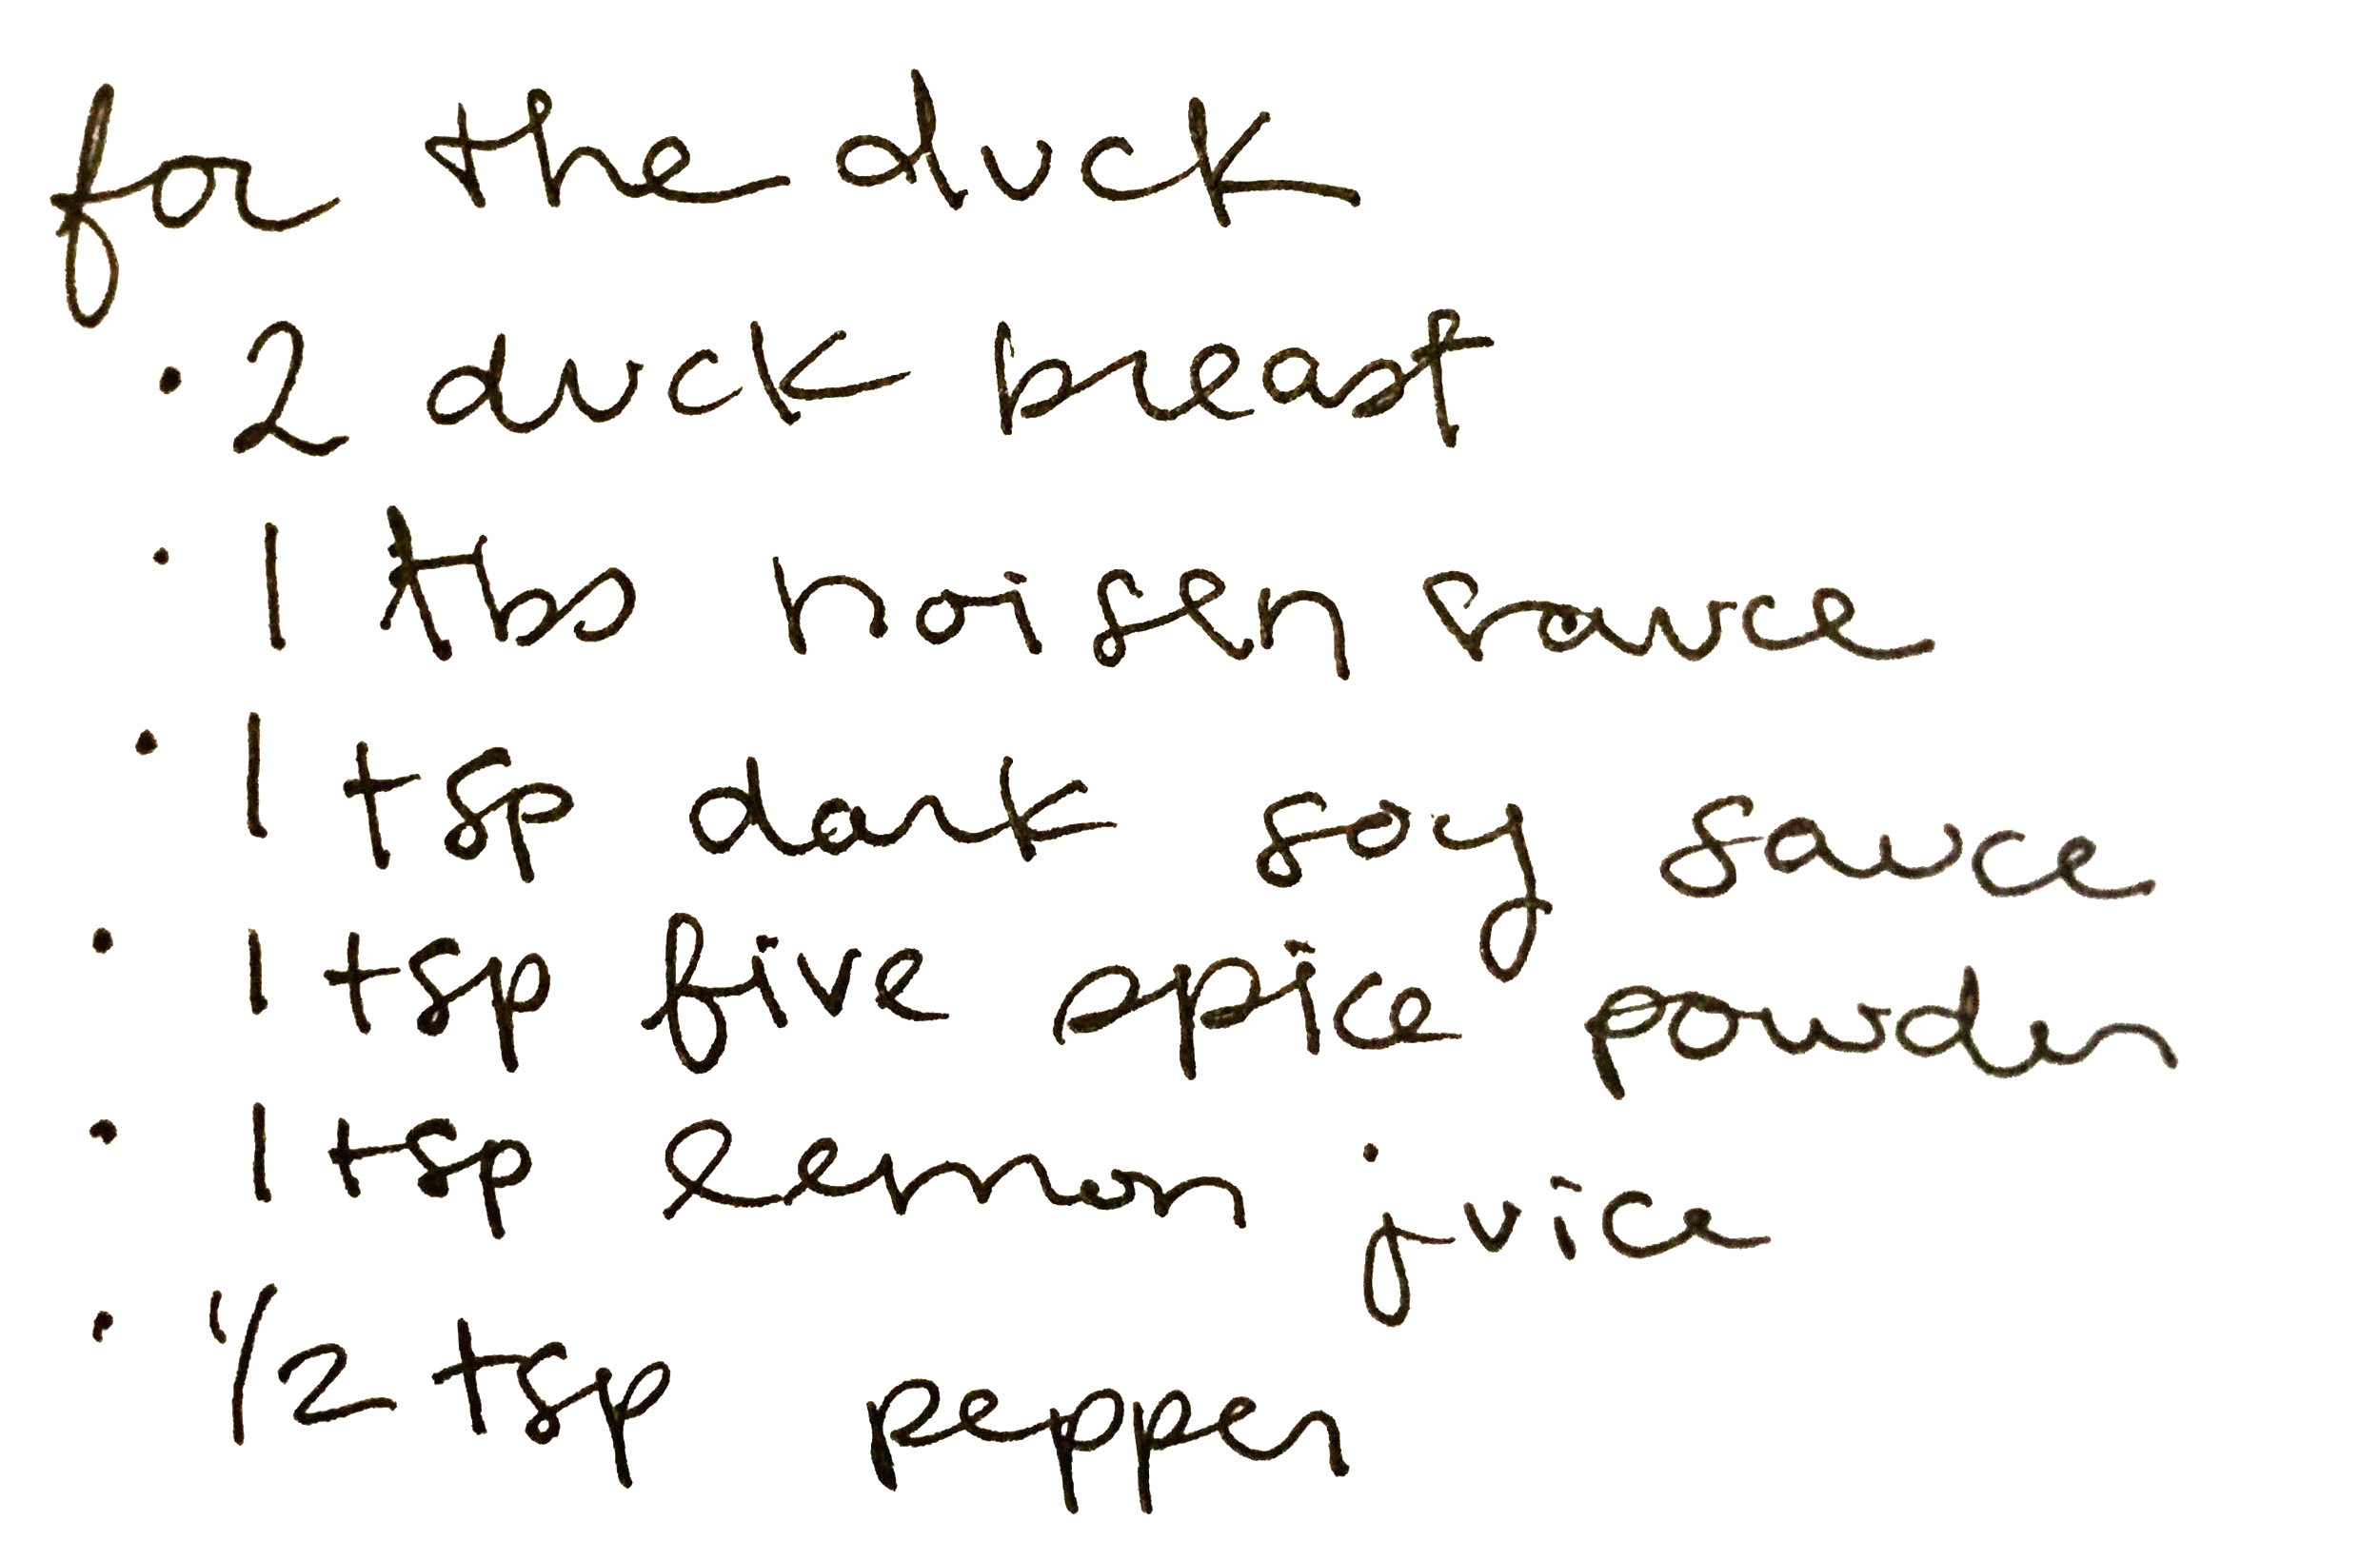 for the duck
· 2 duck breast
· 1 tbs hoisen sauce
· 1 tsp dark soy sauce
· 1 tsp five spice powder
· 1 tsp lemon juice
· 1/2 tsp pepper